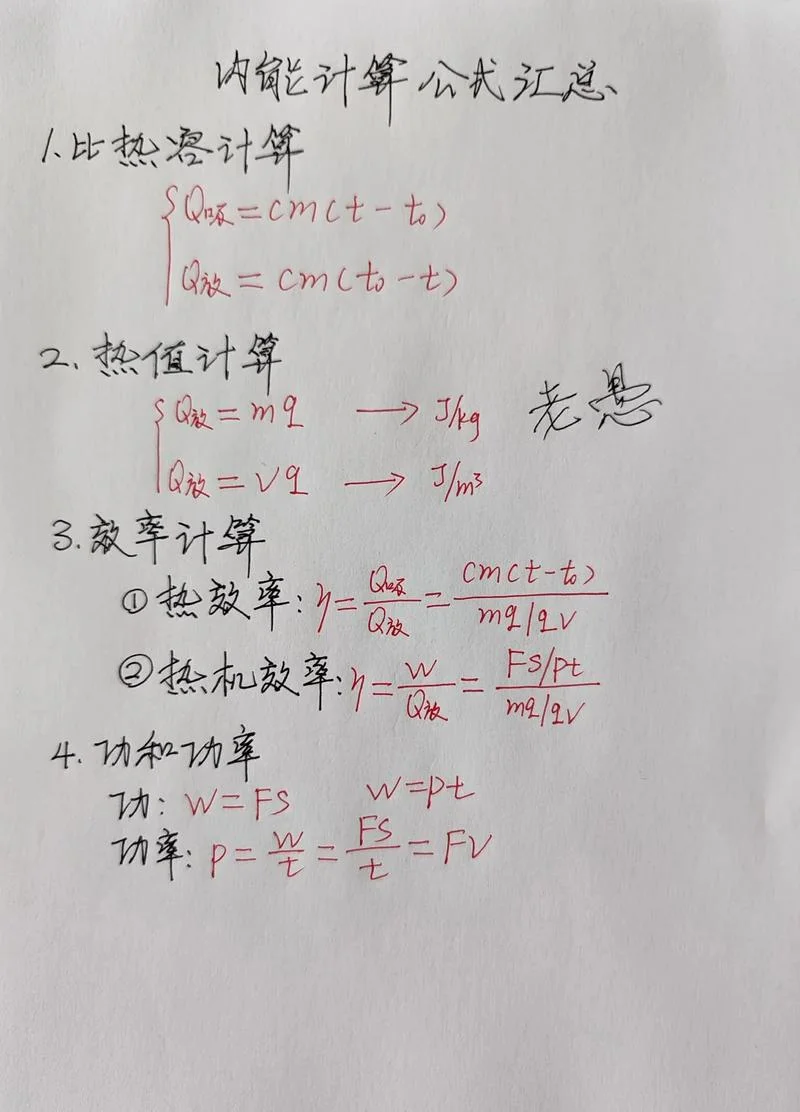 内能计算公式汇总
1.比热容计算
Q吸=cm(t-t₀)
Q放=cm(t₀-t)
2.热值计算
Q放=mq → J/kg
老愚
Q放=Vq → J/m³
3.效率计算
①热效率:η=Q吸/Q放=cm(t-t₀)/mq/qV
②热机效率:η=W/Q放=FS/pt/mq/qV
4.功和功率
功:W=FS W=pt
功率:P=W/t=FS/t=FV